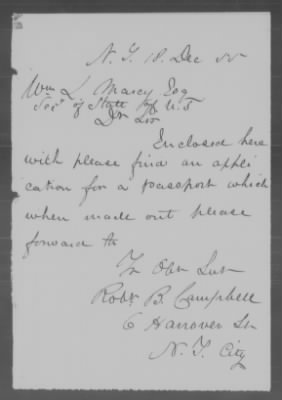 N.Y. 18 Dec 55
Wm L. Marcy Esq
Secy of State of U.S
Dr Sir
Enclosed here
with please find an appli
cation for a passport which
when made out please
forward to
Yr Obt Svt
Robt B. Campbell
6 Hanover St
N.Y. City